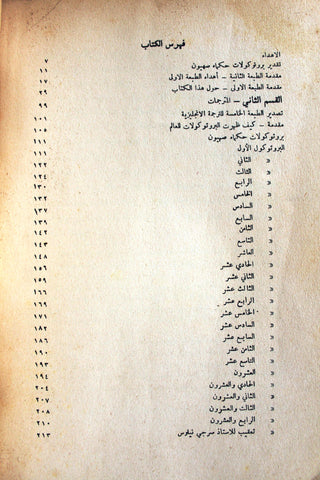 فهرس الكتاب
الاهداء
تقدير بروتوكولات حكماء صهيون ٧
مقدمة الطبعة الثانية - أهداء الطبعة الاولى ١١
مقدمة الطبعة الاولى - حول هذا الكتاب ١٧
القسم الثاني - المترجمات ٢٩
تصدير الطبعة الخامسة للترجمة الانجليزية ٩٩
مقدمة - كيف ظهرت البروتوكولات للعالم ١٠١
بروتوكولات حكماء صهيون ١٠٥
البروتوكول الأول ١١١
« الثاني ١١١
« الثالث ١٢٢
« الرابع ١٢٤
« الخامس ١٣٠
« السادس ١٣٢
« السابع ١٣٧
« الثامن ١٣٩
« التاسع ١٤٢
« العاشر ١٤٣
« الحادي عشر ١٤٨
« الثاني عشر ١٥٦
« الثالث عشر ١٥٩
« الرابع عشر ١٦٦
« الخامس عشر ١٦٩
« السادس عشر ١٧١
« السابع عشر ١٨٢
« الثامن عشر ١٨٦
« التاسع عشر ١٩٠
« العشرون ١٩٣
« الحادي والعشرون ١٩٤
« الثاني والعشرون ٢٠٤
« الثالث والعشرون ٢٠٧
« الرابع والعشرون ٢٠٨
تعقيب للاستاذ سرجي نيلوس ٢١٠
٢١٣